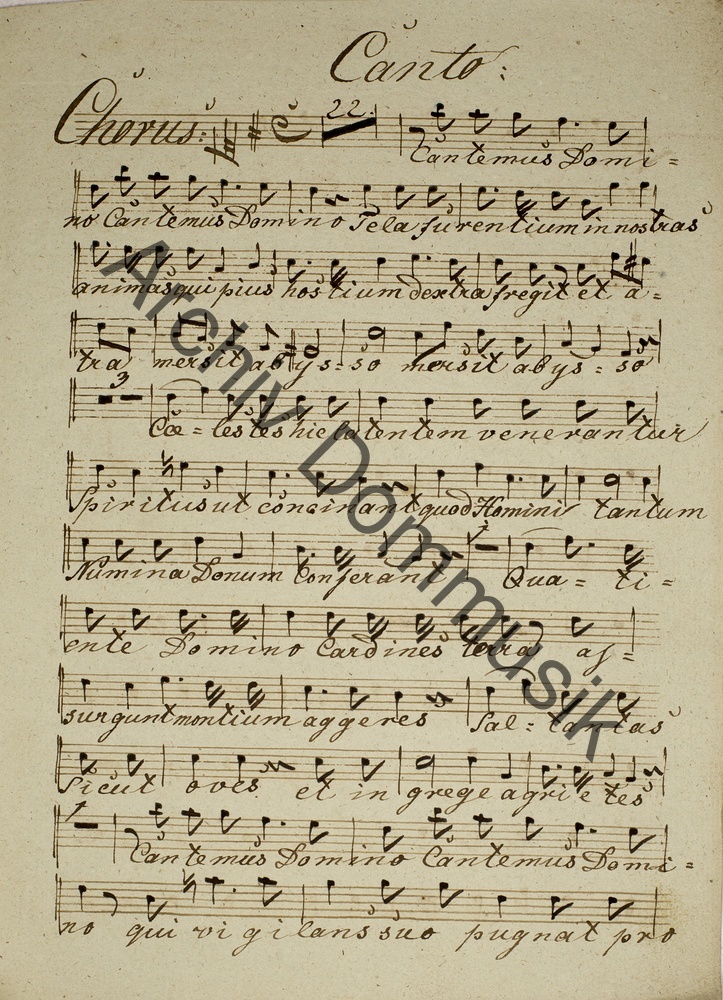 Canto:
Chorus: 22.
Cantemus Domi=
no Cantemus Domino Tela furentium in nostras
animas qui pius hostium dextra fregit et a=
tra mersit abys=so mersit abys=so
3
Cœ=lestes hic latentem venerantur
Spiritus ut concinant quod Homini tantum
1
Numina Donum Conferant Qua=ti=
ente Domino Cardines terra as=
surgunt montium aggeres Sal=tantas
Sicut oves et in grege agri e tes
1
Cantemus Domino Cantemus Domi=
no qui vigilans suo pugnat pro
Archiv Dommusik